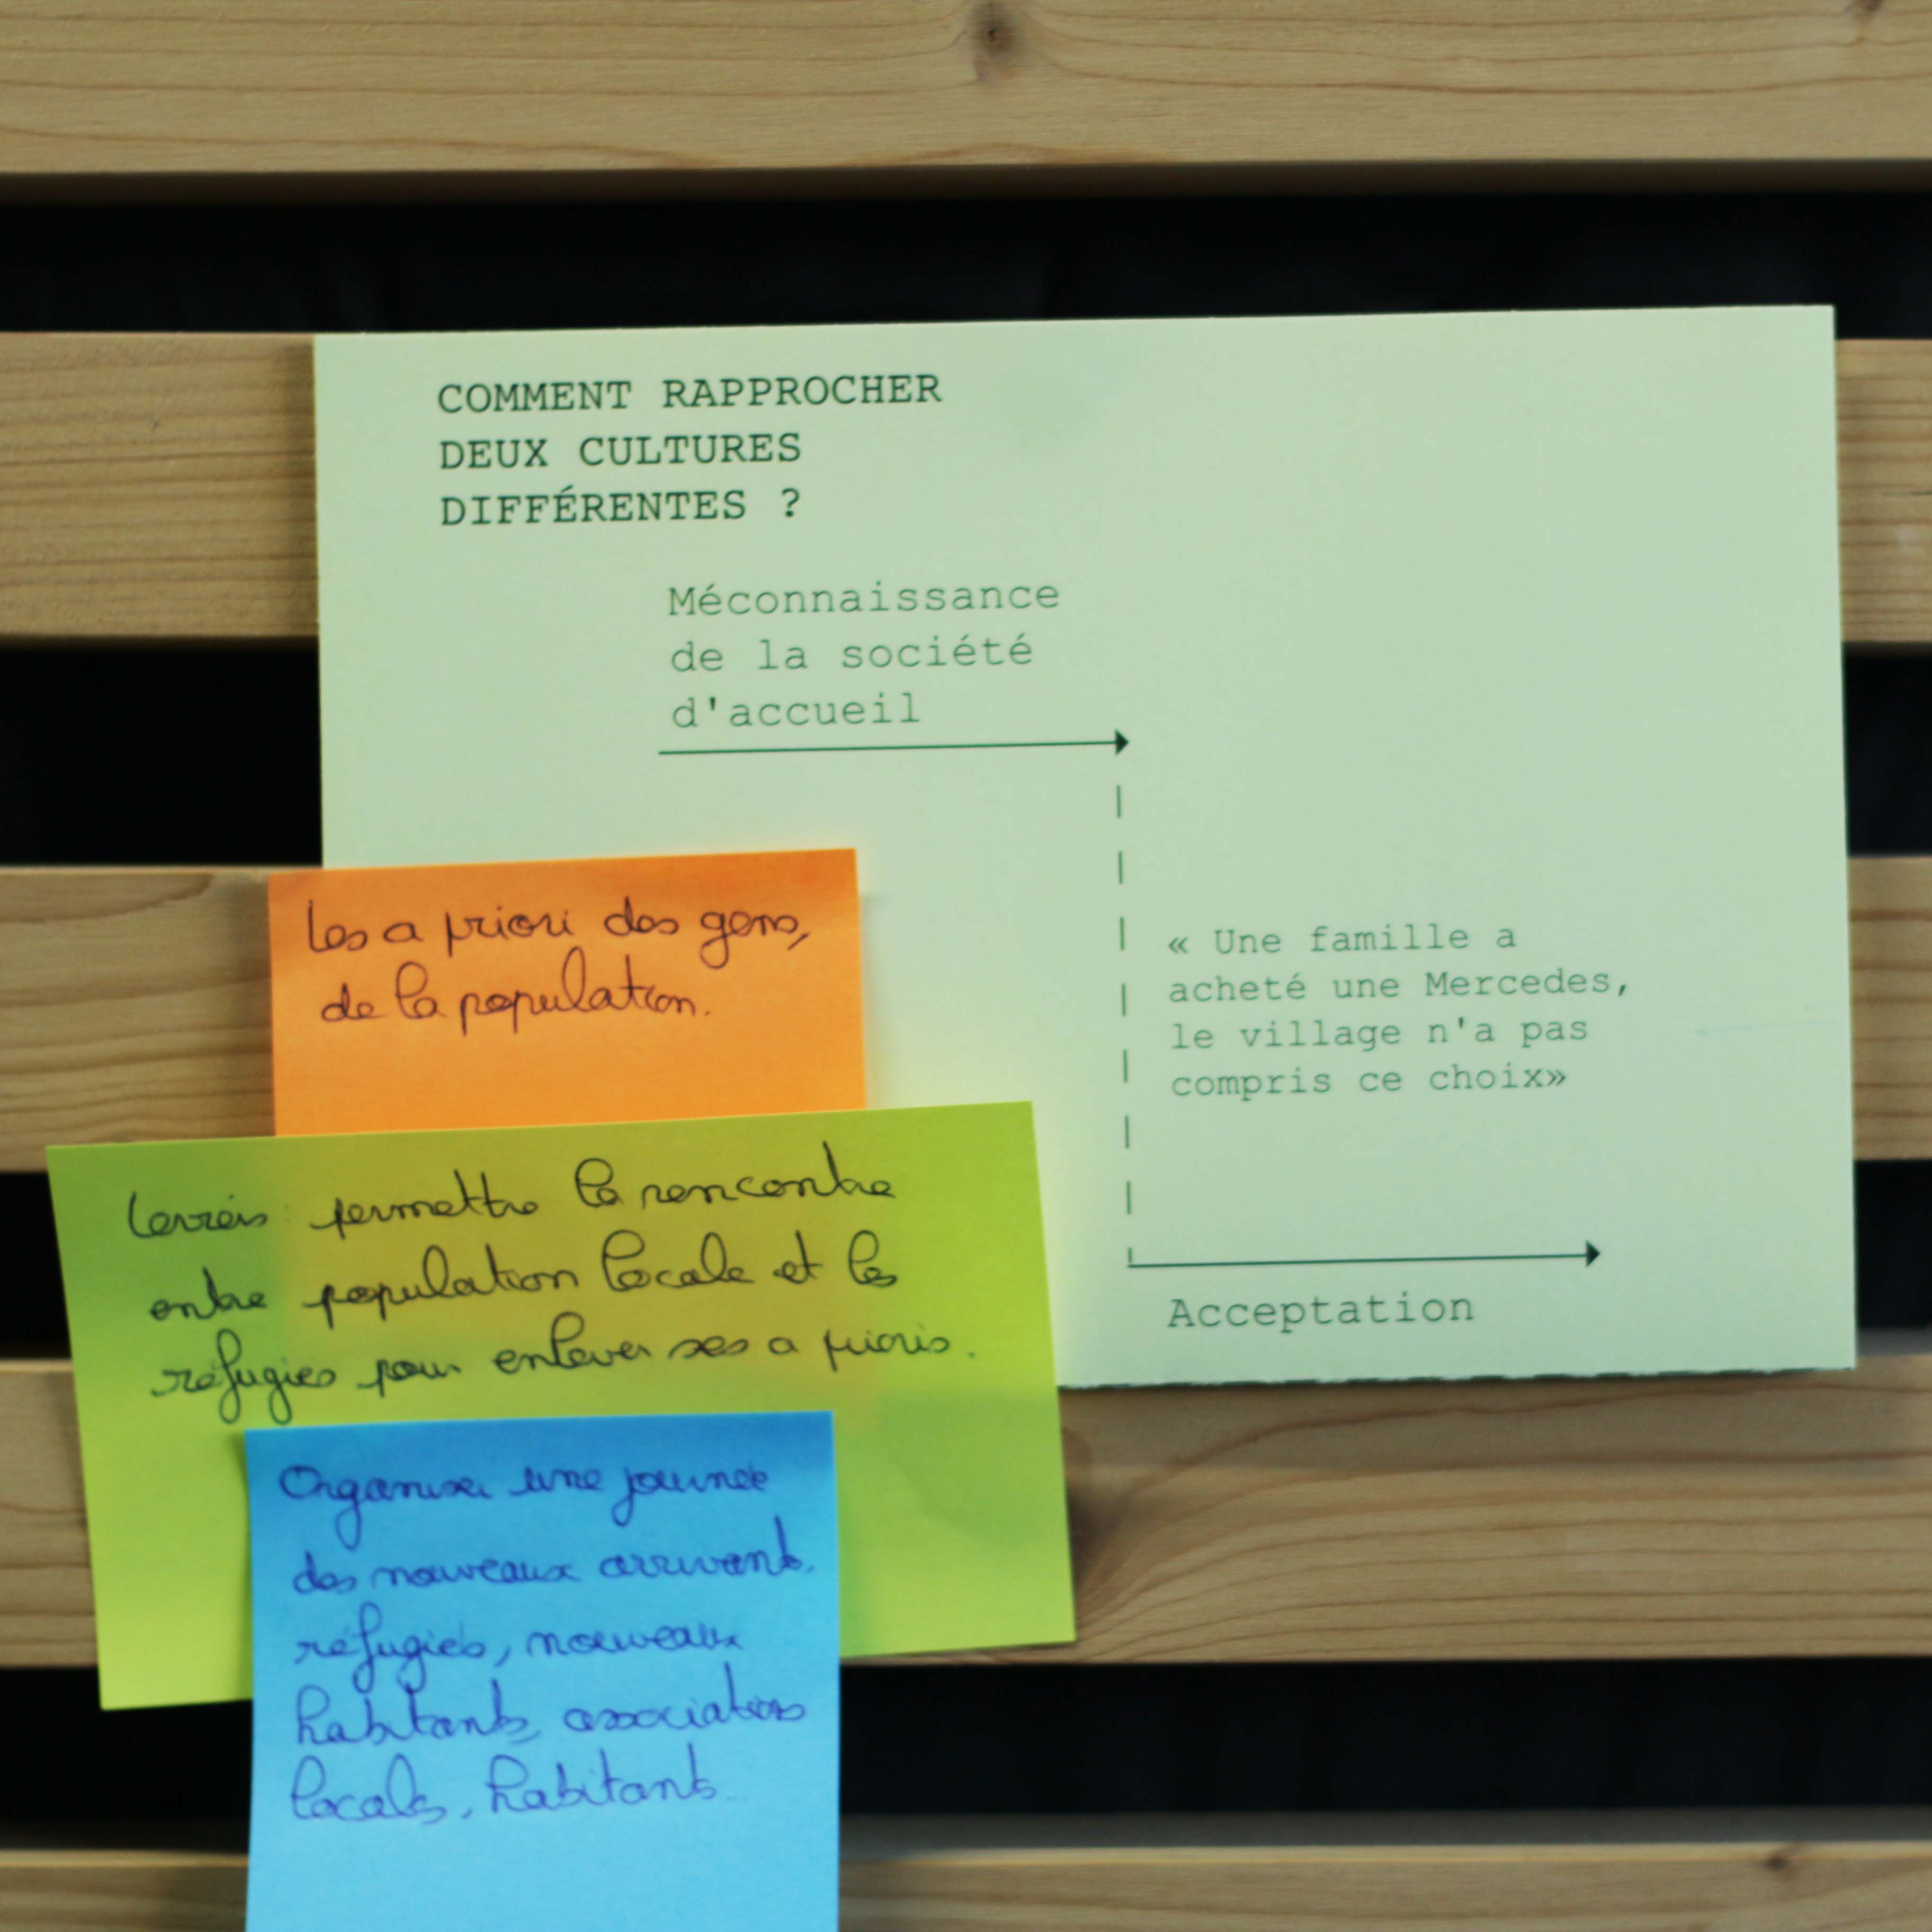 COMMENT RAPPROCHER
DEUX CULTURES
DIFFÉRENTES ?
Méconnaissance
de la société
d'accueil
« Une famille a
acheté une Mercedes,
le village n'a pas
compris ce choix»
Acceptation
Les a priori des gens,
de la population.
permettre la rencontre
entre population locale et les
réfugiés pour enlever ses a prioris.
Organiser une journée
des nouveaux arrivants,
réfugiés, nouveaux
habitants, associations
locales, habitants...